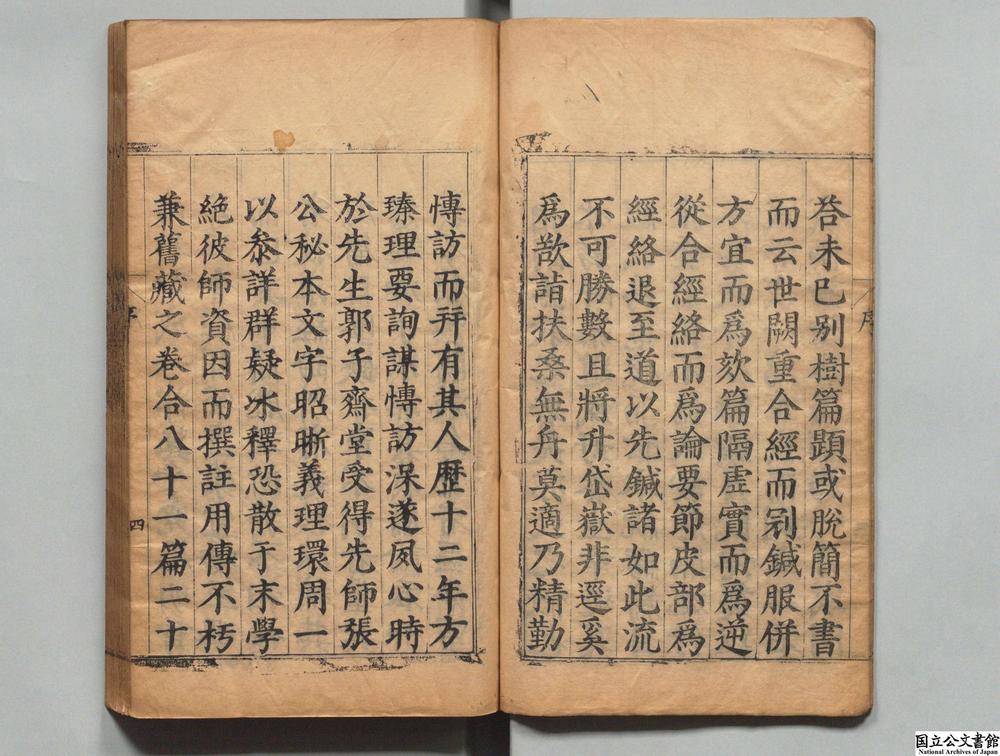 荅未已別樹篇題或脫簡不書
而云世闕重合經而冠鍼服併
方宜而爲欬篇隔虛實而爲逆
從合經絡而爲論要節皮部爲
經絡退至道以先鍼諸如此流
不可勝數且將升岱嶽非逕奚
爲欲詣扶桑無舟莫適乃精勤
愽訪而幷有其人歷十二年方
臻理要詢謀愽訪深遂夙心時
於先生郭子齋堂受得先師張
公秘本文字昭晰義理環周一
以叅詳群疑冰釋恐散于末學
絶彼師資因而撰註用傳不朽
兼舊藏之卷合八十一篇二十
序
序
四
国立公文書館
National Archives of Japan